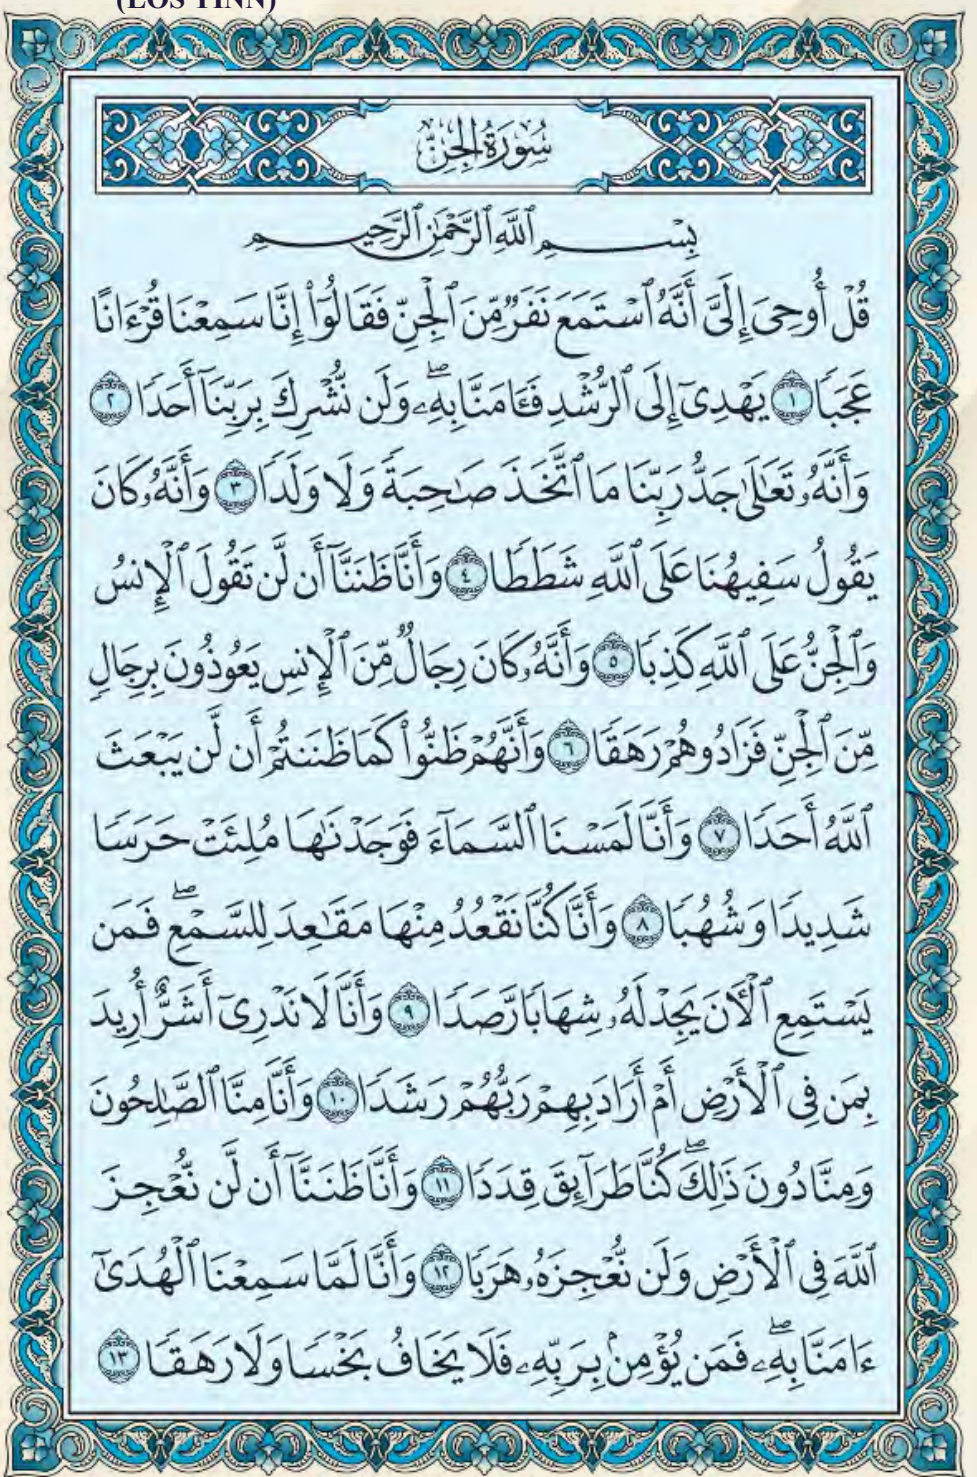 (LOS YINN)
سُورَةُ الجِنِّ
بِسْمِ ٱللَّهِ ٱلرَّحْمَٰنِ ٱلرَّحِيمِ
قُلْ أُوحِيَ إِلَيَّ أَنَّهُ ٱسْتَمَعَ نَفَرٌ مِّنَ ٱلْجِنِّ فَقَالُوٓاْ إِنَّا سَمِعْنَا قُرْءَانًا
عَجَبًا ١ يَهْدِىٓ إِلَى ٱلرُّشْدِ فَـَٔامَنَّا بِهِۦۖ وَلَن نُّشْرِكَ بِرَبِّنَآ أَحَدًا ٢
وَأَنَّهُۥ تَعَٰلَىٰ جَدُّ رَبِّنَا مَا ٱتَّخَذَ صَٰحِبَةً وَلَا وَلَدًا ٣ وَأَنَّهُۥ كَانَ
يَقُولُ سَفِيهُنَا عَلَى ٱللَّهِ شَطَطًا ٤ وَأَنَّا ظَنَنَّآ أَن لَّن تَقُولَ ٱلْإِنسُ
وَٱلْجِنُّ عَلَى ٱللَّهِ كَذِبًا ٥ وَأَنَّهُۥ كَانَ رِجَالٌ مِّنَ ٱلْإِنسِ يَعُوذُونَ بِرِجَالٍ
مِّنَ ٱلْجِنِّ فَزَادُوهُمْ رَهَقًا ٦ وَأَنَّهُمْ ظَنُّواْ كَمَا ظَنَنتُمْ أَن لَّن يَبْعَثَ
ٱللَّهُ أَحَدًا ٧ وَأَنَّا لَمَسْنَا ٱلسَّمَآءَ فَوَجَدْنَٰهَا مُلِئَتْ حَرَسًا
شَدِيدًا وَشُهُبًا ٨ وَأَنَّا كُنَّا نَقْعُدُ مِنْهَا مَقَٰعِدَ لِلسَّمْعِۖ فَمَن
يَسْتَمِعِ ٱلْـَٔانَ يَجِدْ لَهُۥ شِهَابًا رَّصَدًا ٩ وَأَنَّا لَا نَدْرِىٓ أَشَرٌّ أُرِيدَ
بِمَن فِى ٱلْأَرْضِ أَمْ أَرَادَ بِهِمْ رَبُّهُمْ رَشَدًا ١٠ وَأَنَّا مِنَّا ٱلصَّٰلِحُونَ
وَمِنَّا دُونَ ذَٰلِكَۖ كُنَّا طَرَآئِقَ قِدَدًا ١١ وَأَنَّا ظَنَنَّآ أَن لَّن نُّعْجِزَ
ٱللَّهَ فِى ٱلْأَرْضِ وَلَن نُّعْجِزَهُۥ هَرَبًا ١٢ وَأَنَّا لَمَّا سَمِعْنَا ٱلْهُدَىٰٓ
ءَامَنَّا بِهِۦۖ فَمَن يُؤْمِنۢ بِرَبِّهِۦ فَلَا يَخَافُ بَخْسًا وَلَا رَهَقًا ١٣